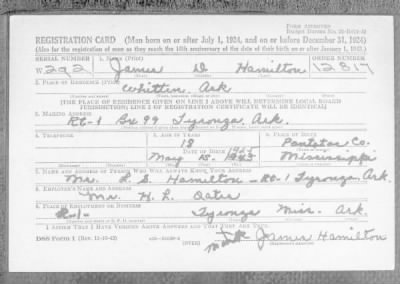 FORM APPROVED
REGISTRATION CARD (Men born on or after July 1, 1924, and on or before December 31, 1924)
(Also for the registration of men as they reach the 18th anniversary of the date of their birth on or after January 1, 1943.)
SERIAL NUMBER 1. NAME (Print) ORDER NUMBER
W 292 James D Hamilton 12817
2. PLACE OF RESIDENCE (Print)
Whitten, Ark
(THE PLACE OF RESIDENCE GIVEN ON LINE 2 ABOVE WILL DETERMINE LOCAL BOARD
JURISDICTION; LINE 2 OF REGISTRATION CERTIFICATE WILL BE IDENTICAL)
3. MAILING ADDRESS
Rt-1 Bx 99 Tyronza, Ark.
4. TELEPHONE 5. AGE IN YEARS 6. PLACE OF BIRTH
18 Pontotoc Co.
DATE OF BIRTH 1925
May 15 Mississippi
7. NAME AND ADDRESS OF PERSON WHO WILL ALWAYS KNOW YOUR ADDRESS
Mr. L. S. Hamilton - Rt-1 Tyronza, Ark.
8. EMPLOYER'S NAME AND ADDRESS
Mr. H. L. Oates
9. PLACE OF EMPLOYMENT OR BUSINESS
R-1- Tyronza Miss. Ark.
I AFFIRM THAT I HAVE VERIFIED ABOVE ANSWERS AND THAT THEY ARE TRUE.
DSS Form 1 (OVER) James Hamilton
mark